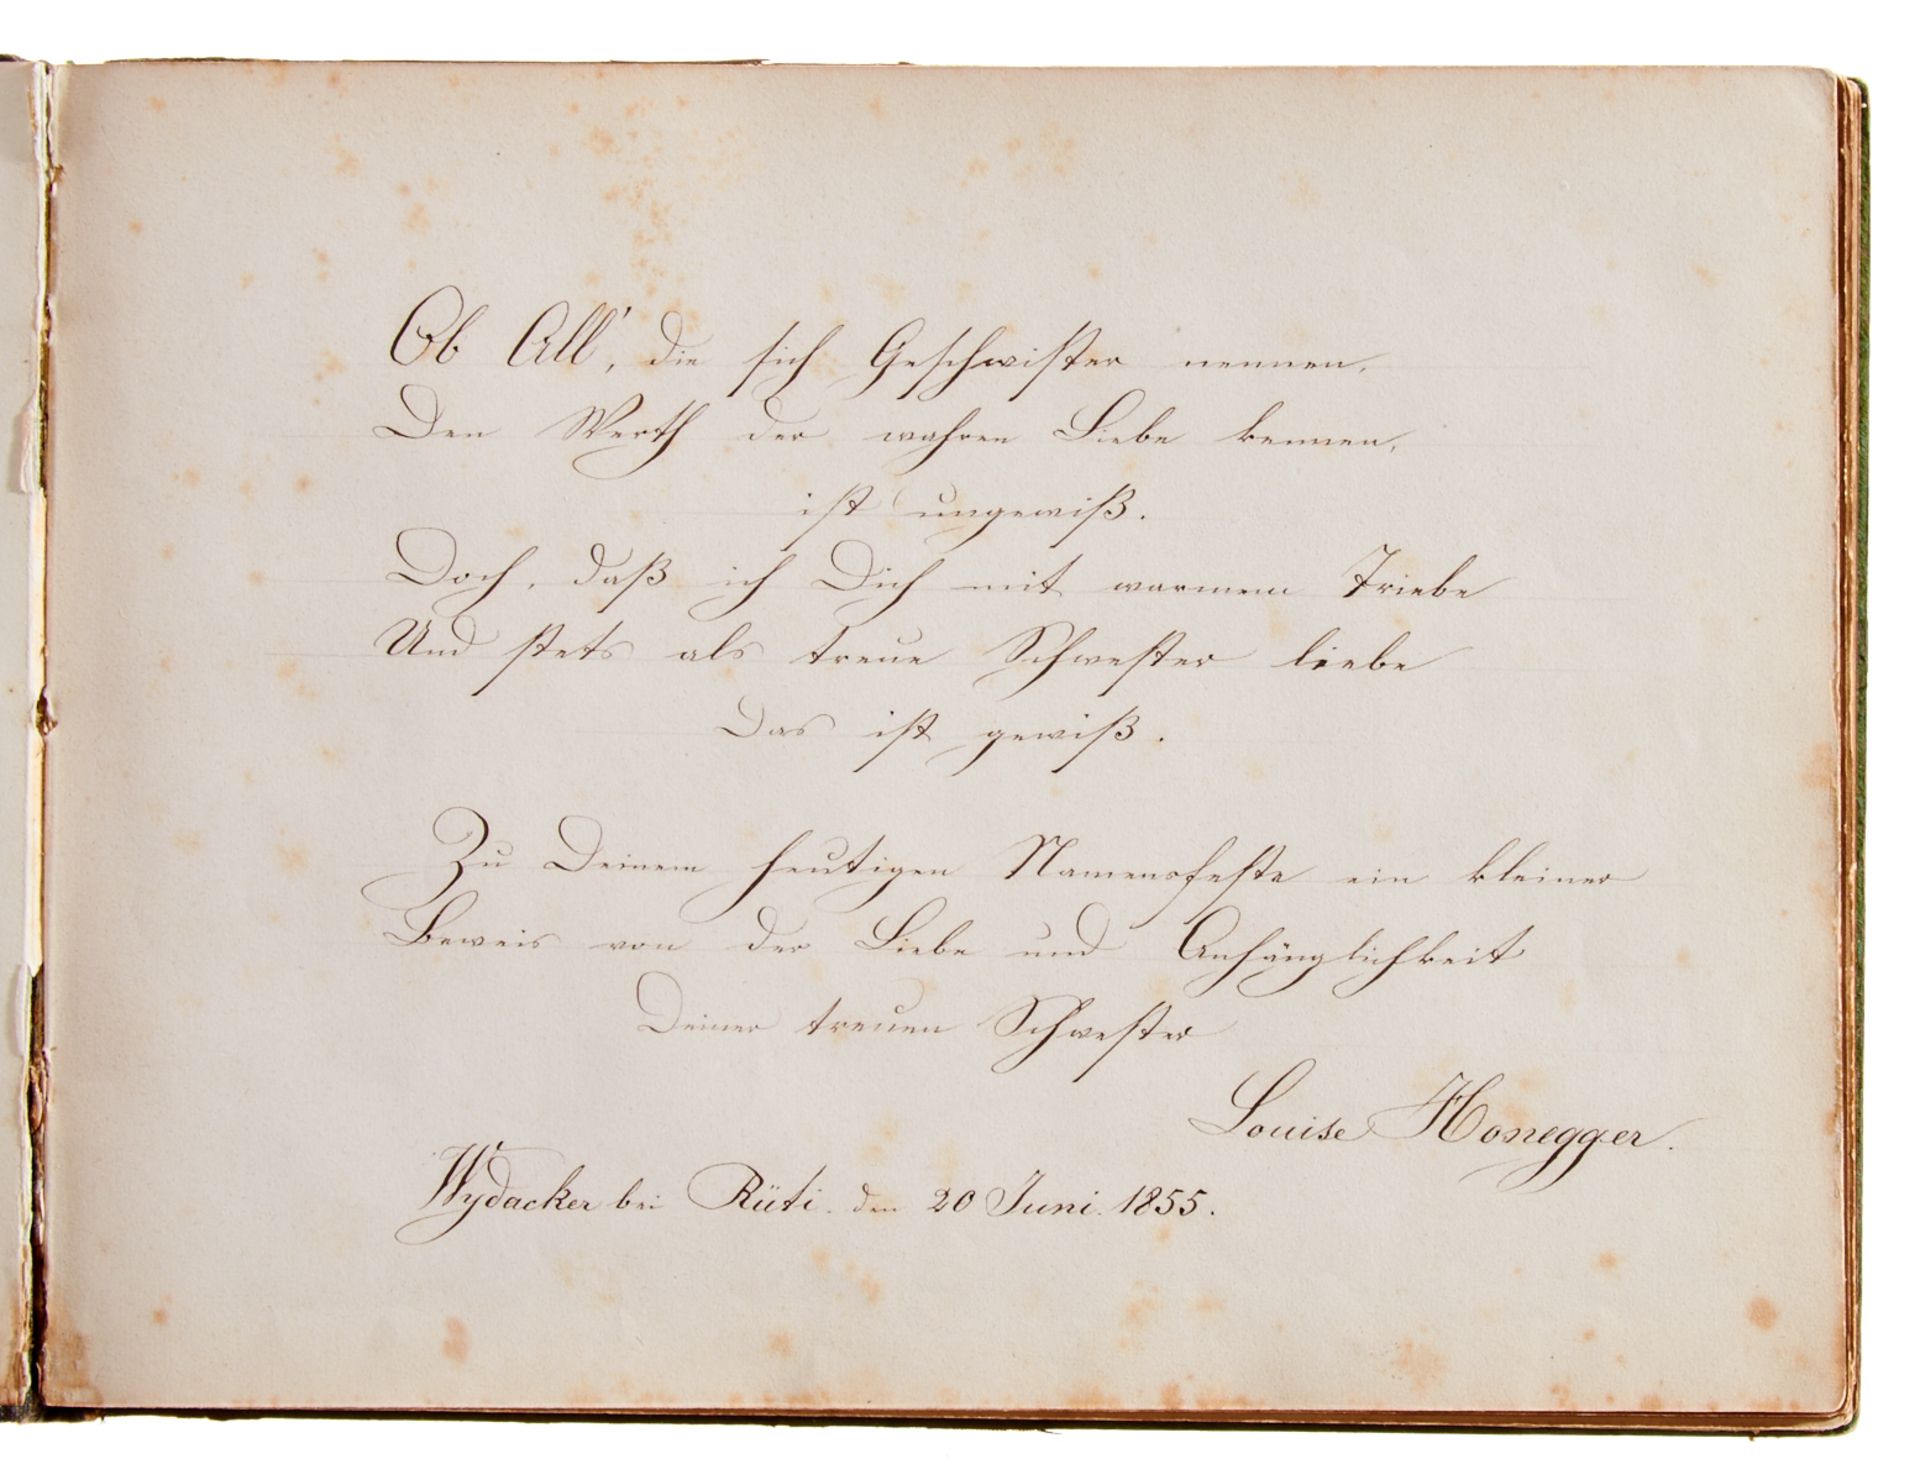 Ob All', die sich Geschwister nennen,
Den Werth der wahren Liebe kennen,
ist ungewiß.
Doch, daß ich Dich mit warmem Triebe
Und stets als treue Schwester liebe
Das ist gewiß.
Zu Deinem heutigen Namensfeste ein kleiner
Beweis von der Liebe und Anhänglichkeit
Deiner treuen Schwester
Louise Honegger.
Wydacker bei Rüti. den 20 Juni. 1855.